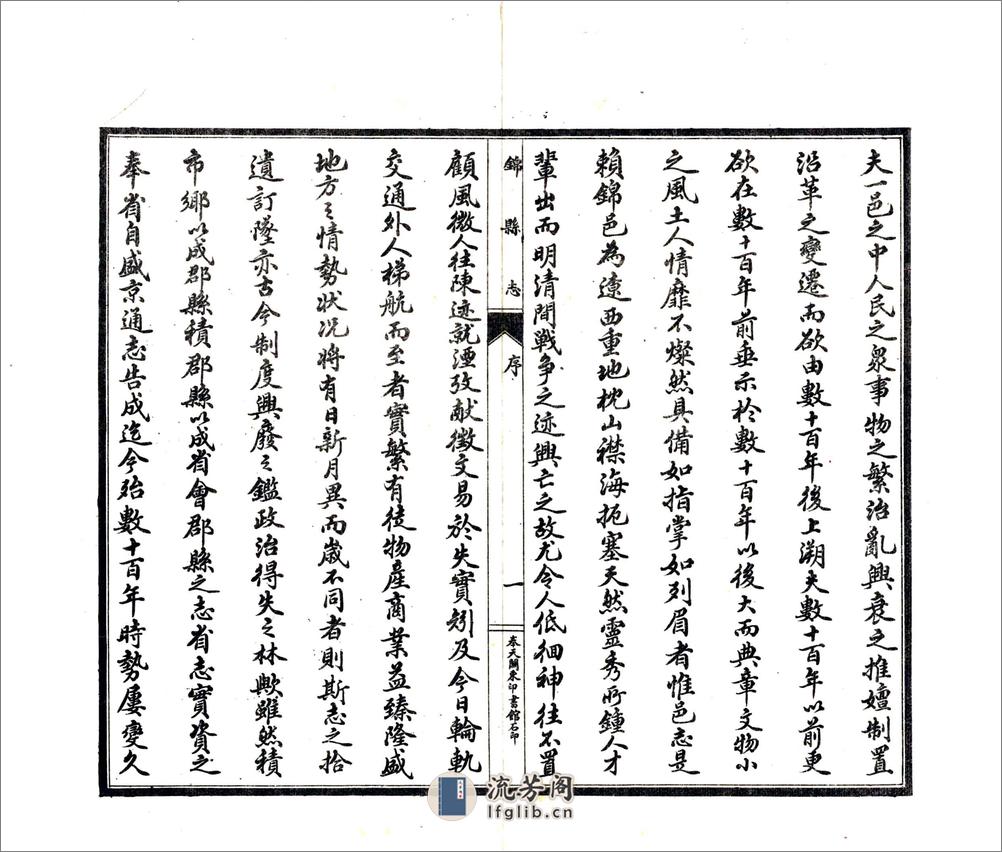 夫一邑之中人民之眾事物之繁治亂興衰之推嬗制置
沿革之變遷而欲由數十百年後上溯夫數十百年以前更
欲在數十百年前垂示於數十百年以後大而典章文物小
之風土人情靡不燦然具備如指掌如列眉者惟邑志是
賴錦邑為遼西重地枕山襟海扼塞天然靈秀所鍾人才
輩出而明清間戰爭之迹興亡之故尤令人低徊神往不置
錦縣志 序 一 奉天關東印書館石印
顧風微人往陳迹就湮攷献徵文易於失實矧及今日輪軌
交通外人梯航而至者實繁有徒物產商業益臻隆盛
地方之情勢狀況將有日新月異而歲不同者則斯志之拾
遺訂墜亦古今制度興廢之鑑政治得失之林歟雖然積
市鄉以成郡縣積郡縣以成省會郡縣之志省志實資之
奉省自盛京通志告成迄今殆數十百年時勢屢變久
流芳阁
lfglib.cn